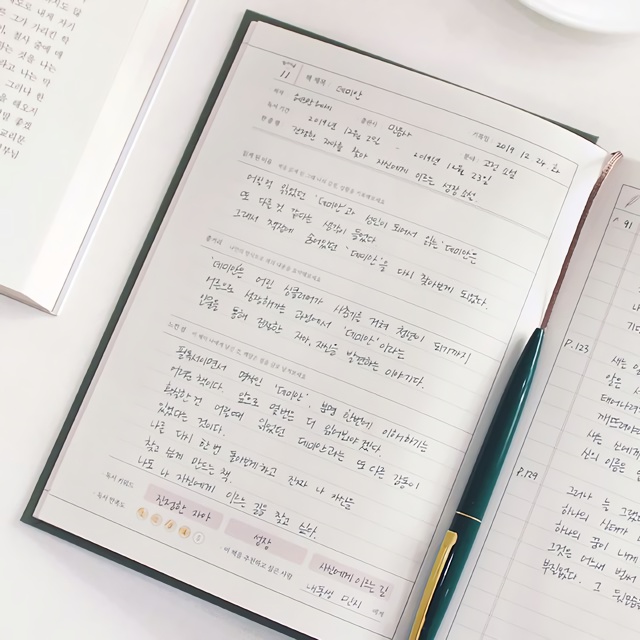 11
책 제목 데미안
저자 헤르만 헤세
출판사 민음사
기록일 2019. 12. 24. 화
독서 기간 2019년 12월 2일 - 2019년 12월 23일
분야 고전 소설
한 줄 평 진정한 자아를 찾아 자신에게 이르는 성장 소설.
읽게 된 이유
어릴 적 읽었던 '데미안'과 성인이 되어서 읽는 '데미안'은
또 다를 것 같다는 생각이 들었다.
그래서 책장에 숨어있던 '데미안'을 다시 찾아보게 되었다.
줄거리
'데미안'은 어린 싱클레어가 사춘기를 거쳐 청년이 되기까지
성장하는 과정에서 '데미안'이라는
인물을 통해 진정한 자아, 자신을 발견하는 이야기다.
느낀 점
필독서이면서 명작인 '데미안'. 분명 한번에 이해하기는
어려운 책이다. 앞으로 몇번은 더 읽어봐야겠다.
확실한 건 어릴 때 읽었던 데미안과는 또 다른 감동이
있었다는 것이다.
나를 다시 한 번 돌아보게 하고 진짜 나 자신을
찾고 싶게 만드는 책.
나도 나 자신에게 이르는 길을 찾고 싶다.
독서 키워드 진정한 자아 성장 자신에게 이르는 길
독서 만족도
이 책을 추천하고 싶은 사람 내동생 민지 에게
P. 91
P. 123
새는 알
않은 세
태어나려
깨뜨려야
새는 신에게
신의 이름은
P. 129
하나의
하나의 꿈이 내게
그것은 어느새 벌써